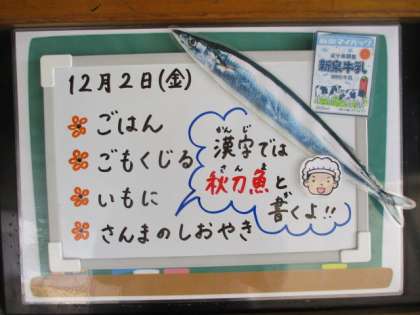 12月2日(金)
ごはん
ごもくじる
いもに
さんまのしおやき
かんじ
漢字では
さんま
秋刀魚と
書くよ!!
新泉牛乳